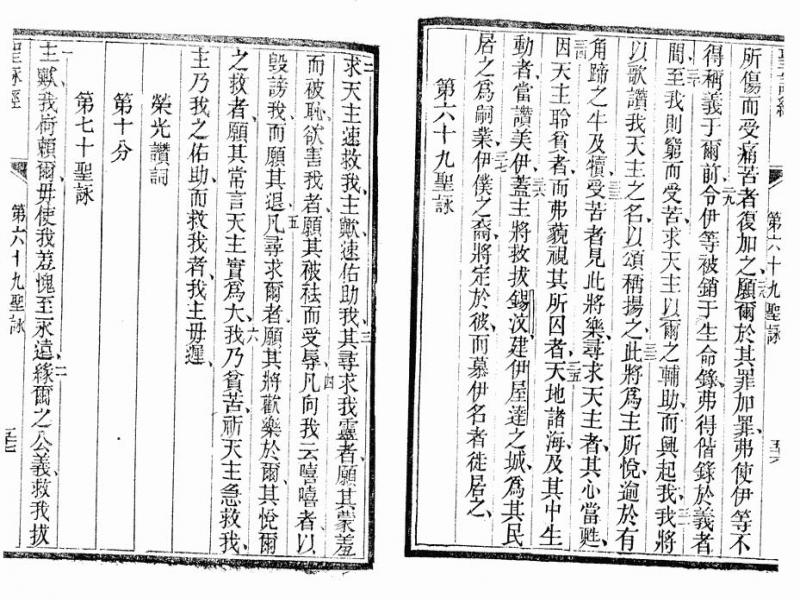 所傷而受痛苦者復加之、二八願爾於其罪加罪弗使伊等不
得稱義于爾前、二九令伊等被銷于生命錄、弗得偕錄於義者
間、三十至我則窮而受苦、求天主以爾之輔助而興起我、三一我將
以歌讚我天主之名、以頌稱揚之、三二此將為主所悅、逾於有
角蹄之牛及犢、三三受苦者見此將樂、尋求天主者、其心當甦、
三四因天主聆貧者、而弗藐視其所囚者、三五天地諸海及其中生
動者當讚美伊、三六蓋主將救拔錫汶、建伊屋達之城、為其民
居之為嗣業、三七伊僕之裔、將定於彼、而慕伊名者徙居之、
第六十九聖詠
二求天主速救我、主歟速佑助我、三其尋求我靈者、願其蒙羞
而被恥、欲害我者、願其被祛而受辱、四凡向我云嘻嘻者、以
毀謗我、而願其退、五凡尋求爾者、願其將歡樂於爾、其悅爾
之救者、願其常言天主實為大、六我乃貧苦、祈天主急救我、
主乃我之佑助而救我者、我主毋遲、
榮光讚詞
第十分
第七十聖詠
一主歟、我倚賴爾、毋使我羞愧至永遠、二緣爾之公義救我拔
聖詠經 第六十九聖詠 五十三